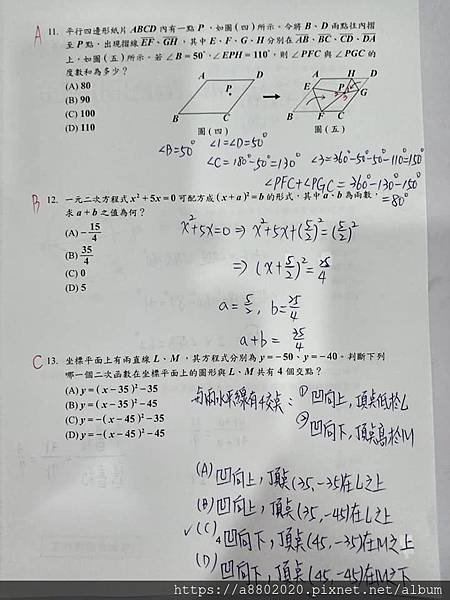 A
11. 平行四邊形紙片 ABCD 內有一點 P，如圖(四)所示。今將 B、D 兩點往內摺
至 P 點，出現摺線 EF、GH，其中 E、F、G、H 分別在 AB、BC、CD、DA
上，如圖(五)所示。若∠B=50°，∠EPH=110°，則∠PFC 與∠PGC 的
度數和為多少？
(A) 80
(B) 90
(C) 100
(D) 110
A D P B C
圖(四)
A H D E P G B F C
圖(五)
∠B=50° ∠1=∠D=50°
∠C=180°-50°=130° ∠3=360°-50°-50°-110°=150°
∠PFC+∠PGC=360°-130°-150°
=80°
B
12. 一元二次方程式 x²+5x=0 可配方成 (x+a)²=b 的形式，其中 a、b 為兩數，
求 a+b 之值為何？
(A) -15/4
(B) 35/4
(C) 0
(D) 5
x²+5x=0 ⇒ x²+5x+(5/2)²=(5/2)²
⇒ (x+5/2)²=25/4
a=5/2, b=25/4
a+b=35/4
C
13. 坐標平面上有兩直線 L、M，其方程式分別為 y=-50、y=-40。判斷下列
哪一個二次函數在坐標平面上的圖形與 L、M 共有 4 個交點？
(A) y=(x-35)²-35
(B) y=(x-35)²-45
(C) y=-(x-45)²-35
(D) y=-(x-45)²-45
與兩水平線有4交點：① 凹向上，頂點低於L
② 凹向下，頂點高於M
(A) 凹向上，頂點(35,-35)在L之上
(B) 凹向上，頂點(35,-45)在L之上
✓(C) 凹向下，頂點(45,-35)在M之上
4
(D) 凹向下，頂點(45,-45)在M之下
https://a8802020.pixnet.net/album